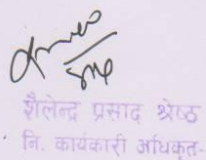 शैलेन्द्र प्रसाद श्रेष्ठ
नि. कार्यकारी अधिकृत-